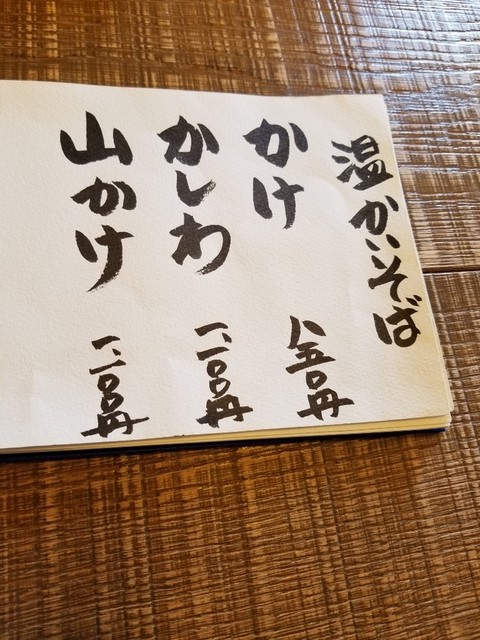 温かいそば
かけ 八五〇円
かしわ 一、一〇〇円
山かけ 一、一〇〇円